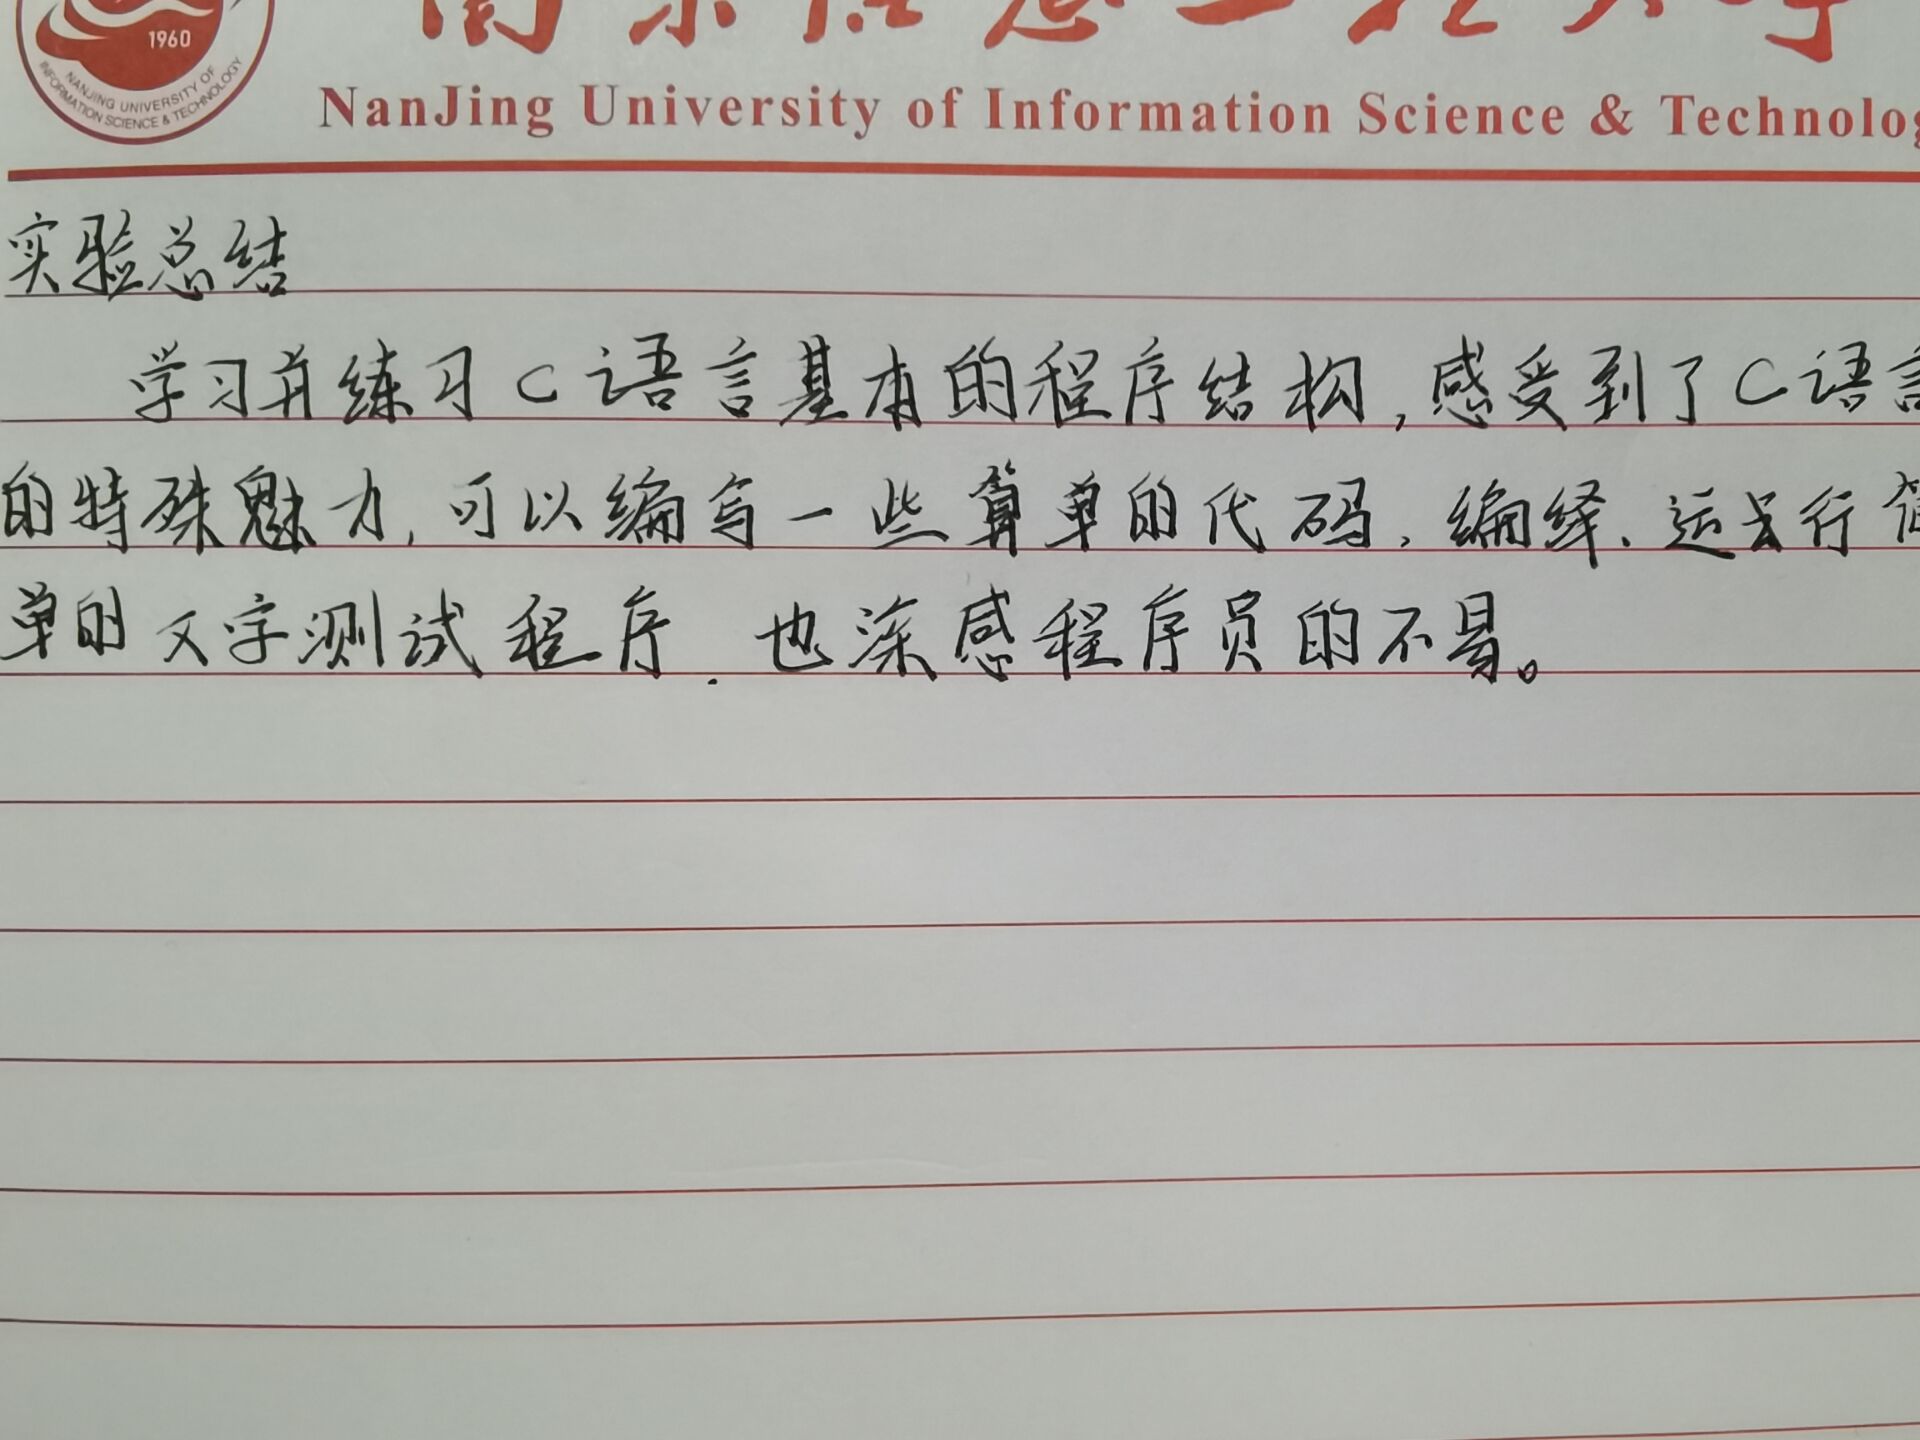 1960
NANJING UNIVERSITY OF
INFORMATION SCIENCE & TECHNOLOGY
南京信息工程大学
NanJing University of Information Science & Technolog
实验总结
学习并练习C语言基本的程序结构,感受到了C语言
的特殊魅力,可以编写一些算单的代码,编绎、运去行简
单的文字测试程序.也深感程序员的不易。